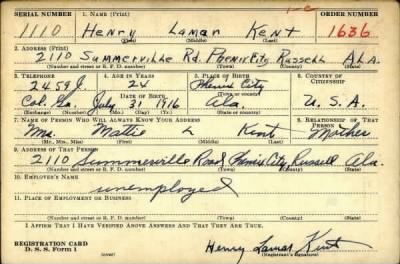 1-C
SERIAL NUMBER 1. NAME (Print) ORDER NUMBER
1110 Henry Lamar Kent 1636
(First) (Middle) (Last)
2. ADDRESS (Print)
2110 Summerville Rd. Phenix City Russell Ala.
(Number and street or R. F. D. number) (Town) (County) (State)
3. TELEPHONE 4. AGE IN YEARS 5. PLACE OF BIRTH 6. COUNTRY OF CITIZENSHIP
2459J. 24 Phenix City
DATE OF BIRTH (Town or county)
Col. Ga. July 31 1916 Ala. U. S. A.
(Exchange) (Number) (Mo.) (Day) (Yr.) (State or country)
7. NAME OF PERSON WHO WILL ALWAYS KNOW YOUR ADDRESS 8. RELATIONSHIP OF THAT PERSON
Mrs. Mattie L Kent Mother
(Mr., Mrs., Miss) (First) (Middle) (Last)
9. ADDRESS OF THAT PERSON
2110 Summerville Road Phenix City, Russell Ala.
(Number and street or R. F. D. number) (Town) (County) (State)
10. EMPLOYER'S NAME
unemployed
11. PLACE OF EMPLOYMENT OR BUSINESS
(Number and street or R. F. D. number) (Town) (County) (State)
I AFFIRM THAT I HAVE VERIFIED ABOVE ANSWERS AND THAT THEY ARE TRUE.
REGISTRATION CARD
D. S. S. Form 1 Henry Lamar Kent
(Registrant's signature)